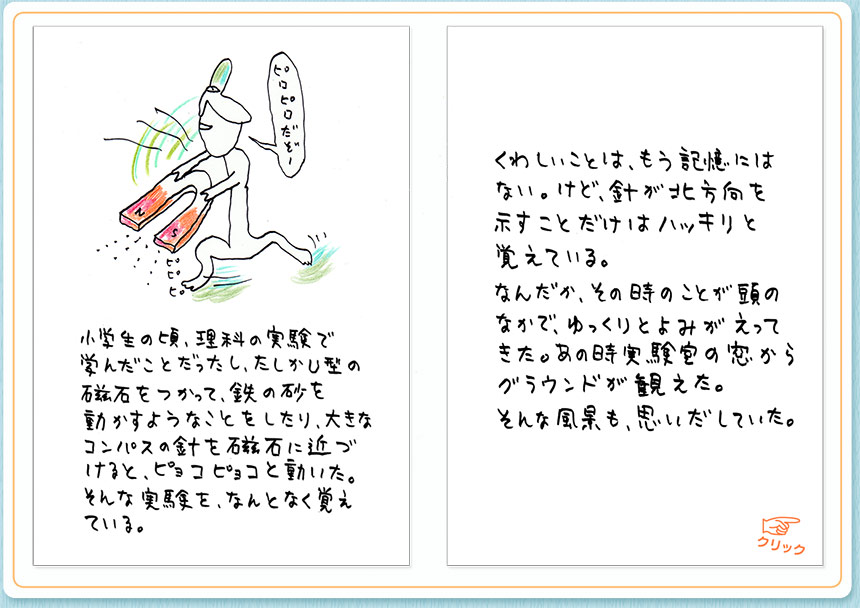 ピロピロだぞー
N
S
ピピピ
小学生の頃、理科の実験で
学んだことだったし、たしかU型の
磁石をつかって、鉄の砂を
動かすようなことをしたり、大きな
コンパスの針を磁石に近づ
けると、ピョコピョコと動いた。
そんな実験を、なんとなく覚え
ている。
くわしいことは、もう記憶には
ない。けど、針が北方向を
示すことだけはハッキリと
覚えている。
なんだか、その時のことが頭の
なかで、ゆっくりとよみがえって
きた。あの時実験室の窓から
グラウンドが観えた。
そんな風景も、思いだしていた。
クリック